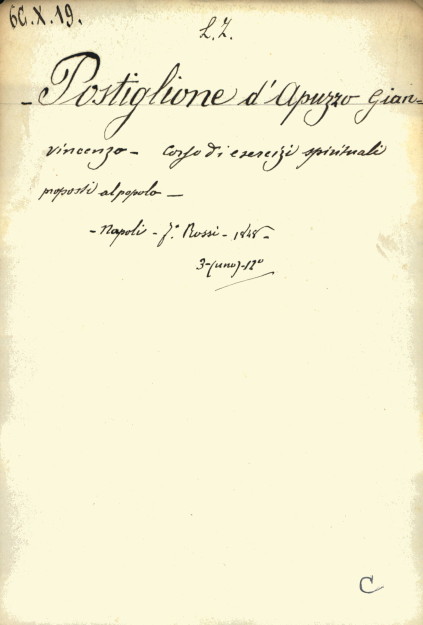 6C.X.19.
L.Z.
- Postiglione d'Apuzzo Gian=
vincenzo - Corso di esercizi spirituali
proposti al popolo -
- Napoli - f.º Rossi - 1848 -
3-(uno)-12º
C